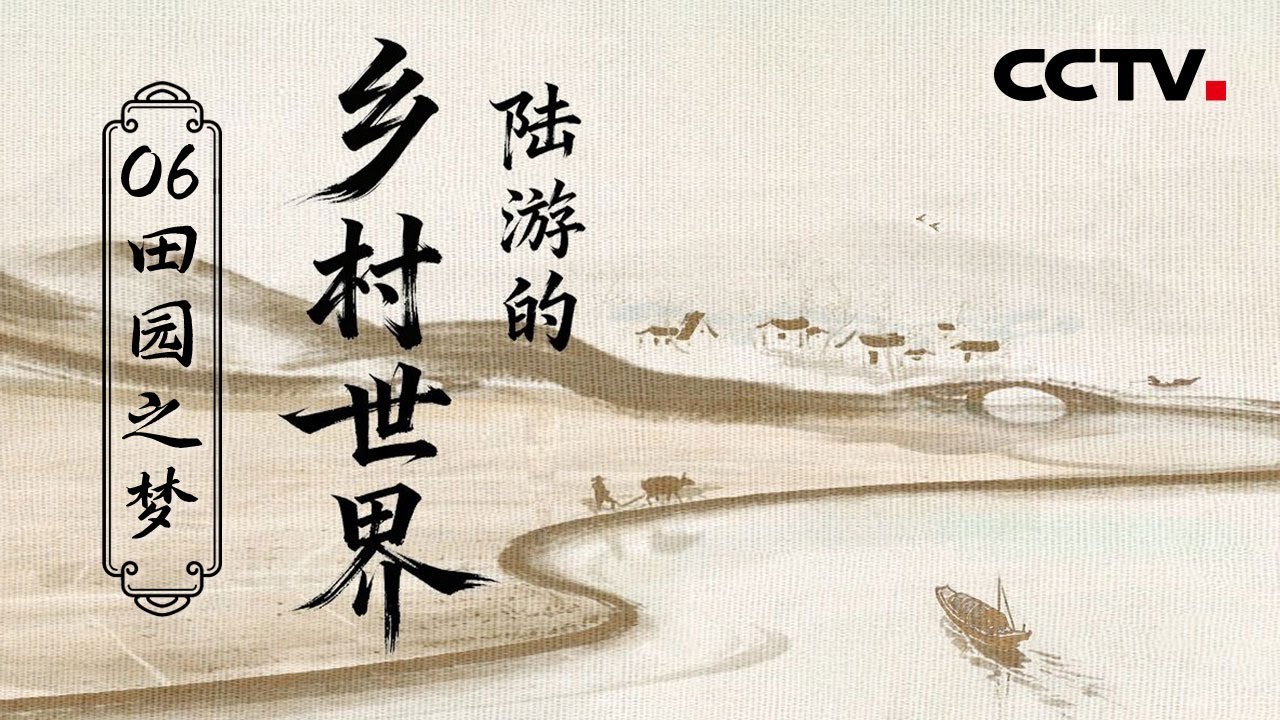 陆游的
乡村世界
06田园之梦
CCTV.